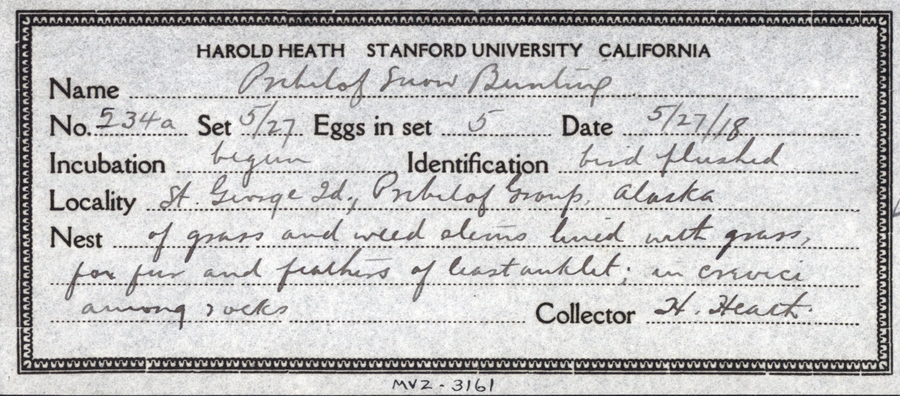 HAROLD HEATH STANFORD UNIVERSITY CALIFORNIA
Name Pribilof Snow Bunting
No. 534a Set 5/27 Eggs in set 5 Date 5/27/18
Incubation begun Identification bird flushed
Locality St. George Id., Pribilof Group, Alaska
Nest of grass and weed stems lined with grass,
fox fur and feathers of least auklet; in crevice
among rocks Collector H. Heath.
MVZ - 3161